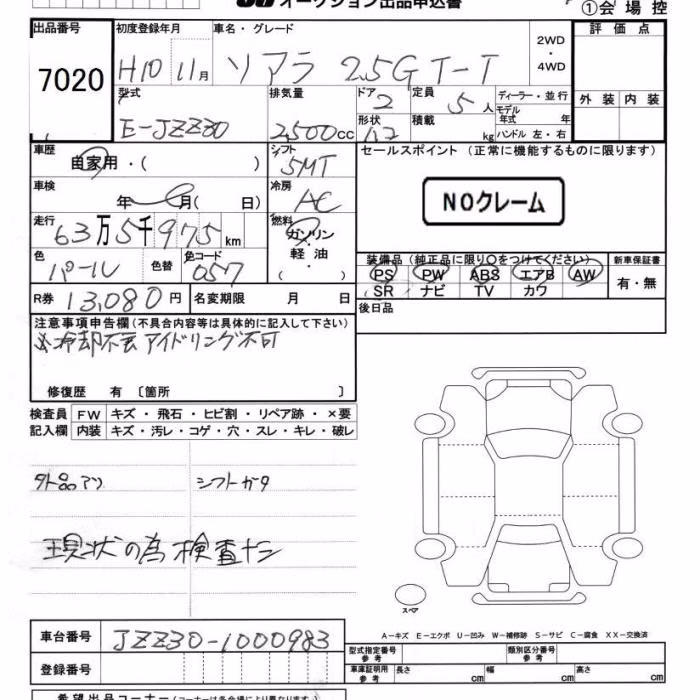 オークション出品申込書
①会場控
出品番号
7020
初度登録年月
H10 11月
車名・グレード
ソアラ 2.5G T-T
2WD
・
4WD
評価点
外装 内装
型式
E-JZZ30
排気量
2,500cc
ドア
2
形状
定員
5人
積載
kg
ディーラー・並行
モデル年式 年
ハンドル 左・右
車歴
自家用・( )
シフト
5MT
車検
年 月( 日)
冷房
AC
走行
63万5千975km
燃料
ガソリン
・
軽油
( )
色
パール
色替
色コード
057
R券 13,080円
名変期限 月 日
セールスポイント (正常に機能するものに限ります)
NOクレーム
装備品 (純正品に限り○をつけてください)
PS PW ABS エアB AW
SR ナビ TV カワ
新車保証書
有・無
後日品
注意事項申告欄(不具合内容等は具体的に記入して下さい)
冷却不良 アイドリング不可
修復歴 有 〔箇所 〕
検査員 FW キズ・飛石・ヒビ割・リペア跡・×要
記入欄 内装 キズ・汚レ・コゲ・穴・スレ・キレ・破レ
外品アツ シフトガタ
現状の為検査ナシ
スペア
A-キズ E-エクボ U-凹み W-補修跡 S-サビ C-腐食 XX-交換済
車台番号 JZZ30-1000983
登録番号
型式指定番号 参考
類別区分番号 参考
車庫証明用 参考 長さ cm 幅 cm 高さ cm
希望出品コーナー(コーナーは各会場により異なります)